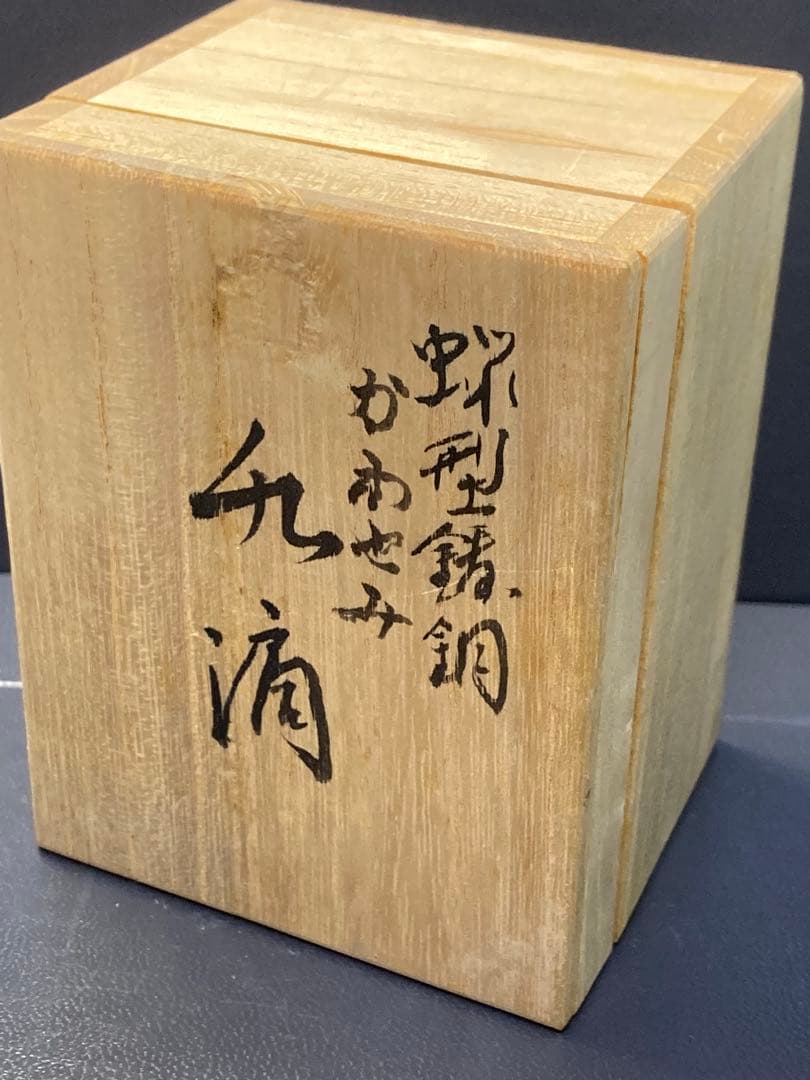 蝋型鋳銅
かわせみ
水滴